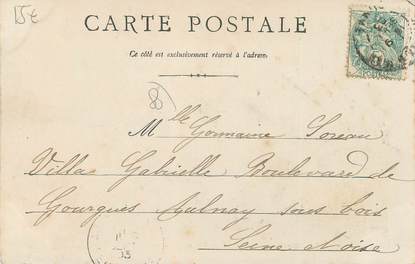 15€
CARTE POSTALE
Ce côté est exclusivement réservé à l'adresse.
8
Mlle Germaine Soreau
Villa Gabrielle Boulevard de
Gourgues Aulnay sous bois
Seine et oise